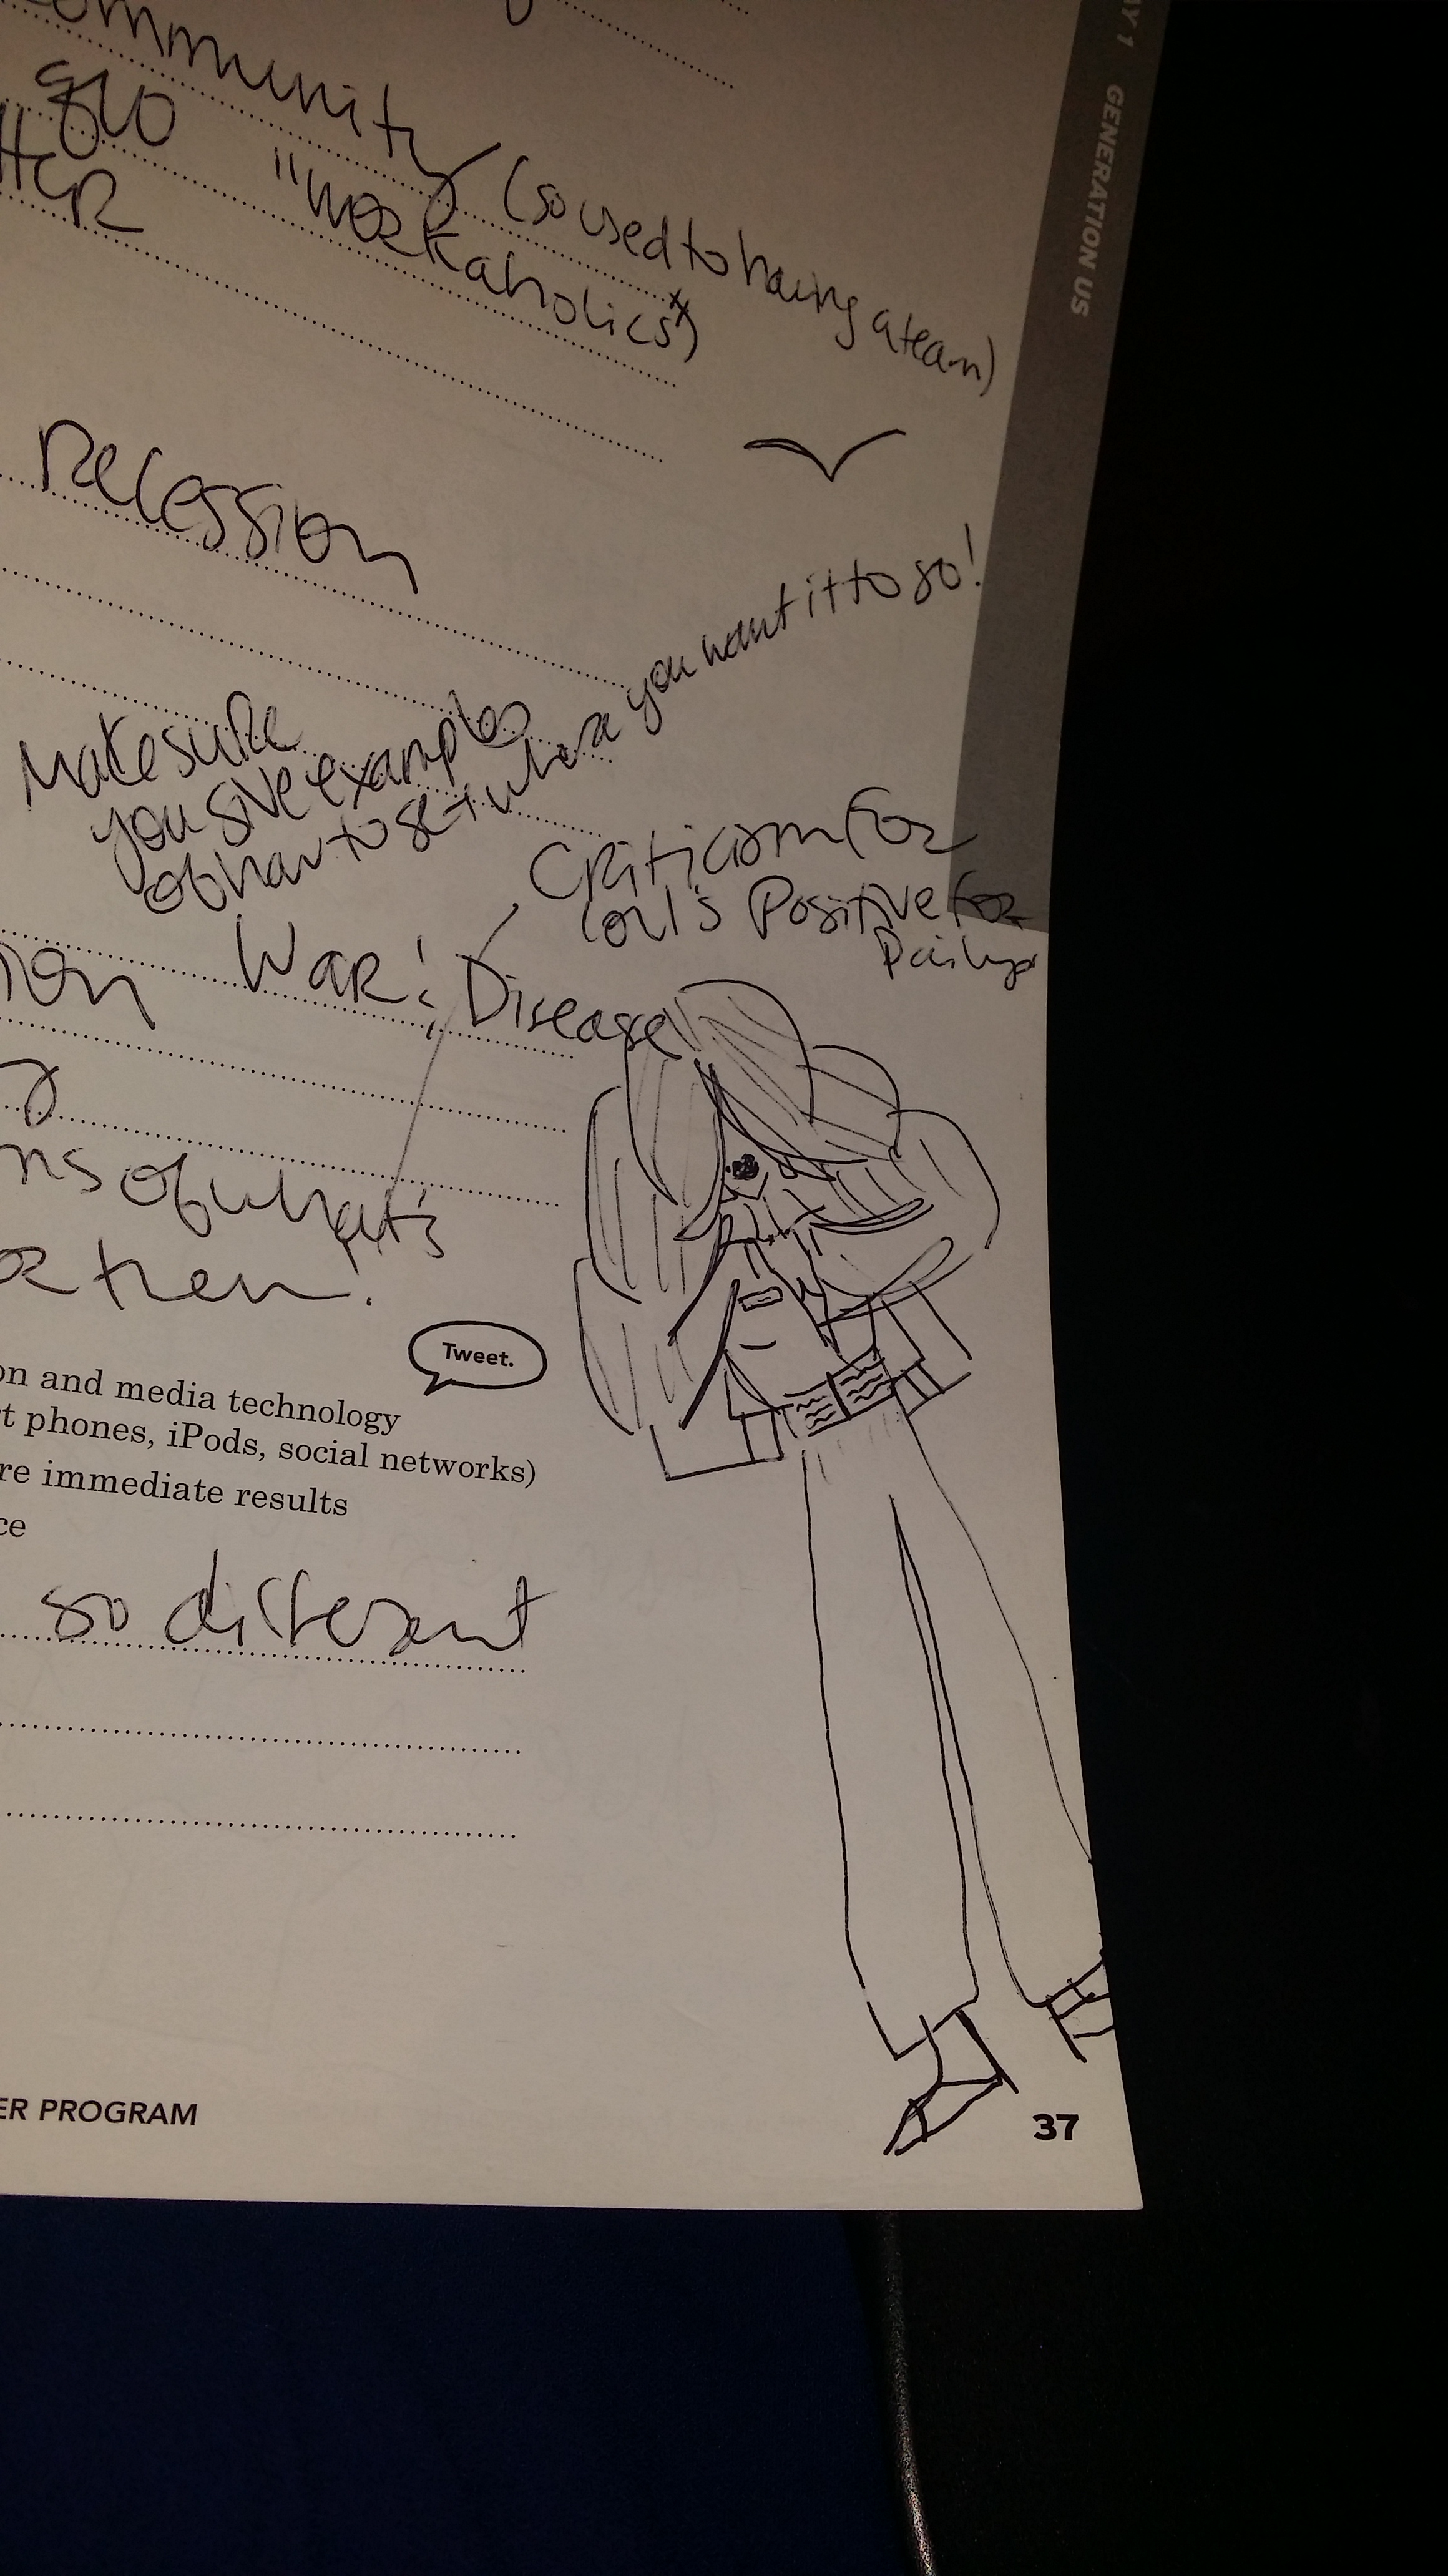 AY 1 GENERATION US
ommunity (so used to having a team)
"workaholics")
Recession
Make sure
you give examples
of how to get where you want it to go!
Criticism for
Positive for
War & Disease
ns of what's
then!
Tweet.
on and media technology
t phones, iPods, social networks)
re immediate results
ce
so different
ER PROGRAM
37